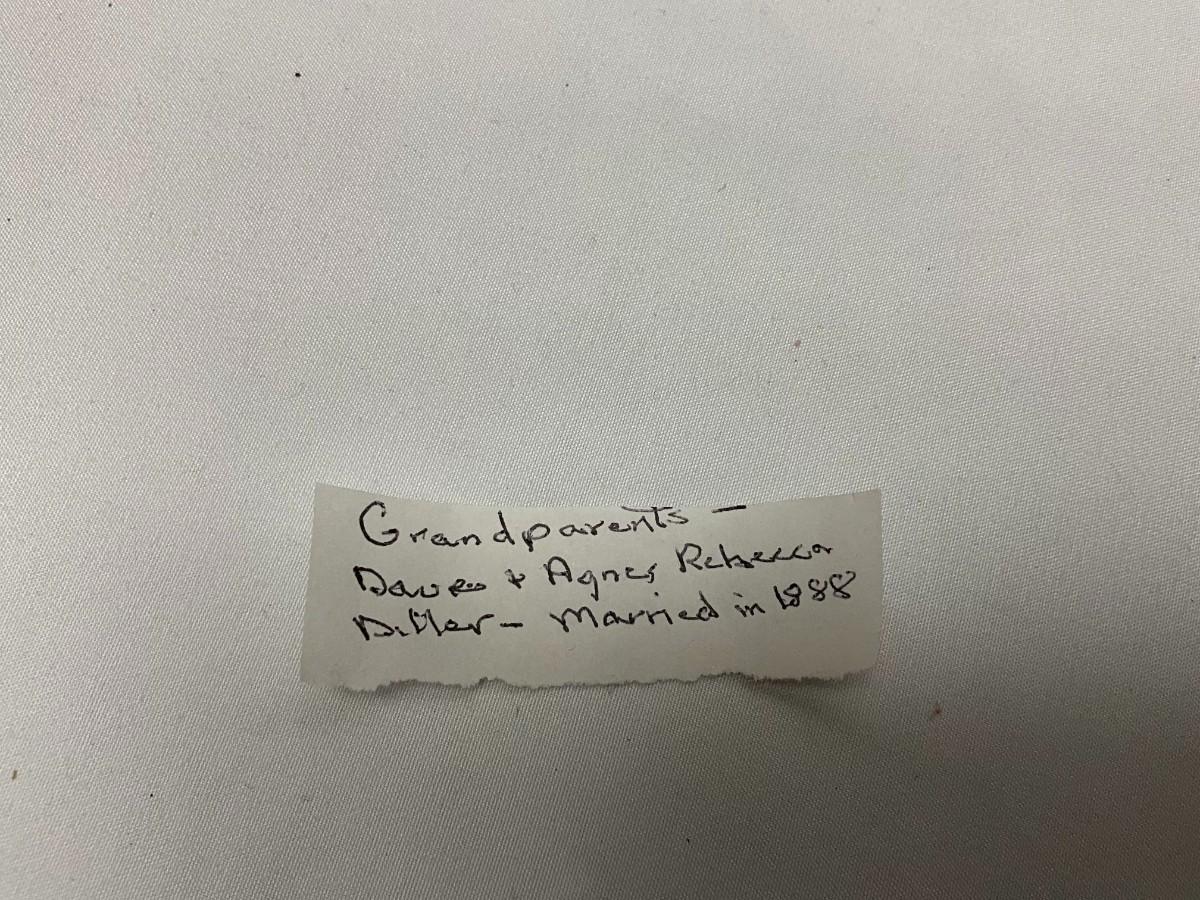 Grandparents -
& Agnes Rebecca
Diller - Married in 1888